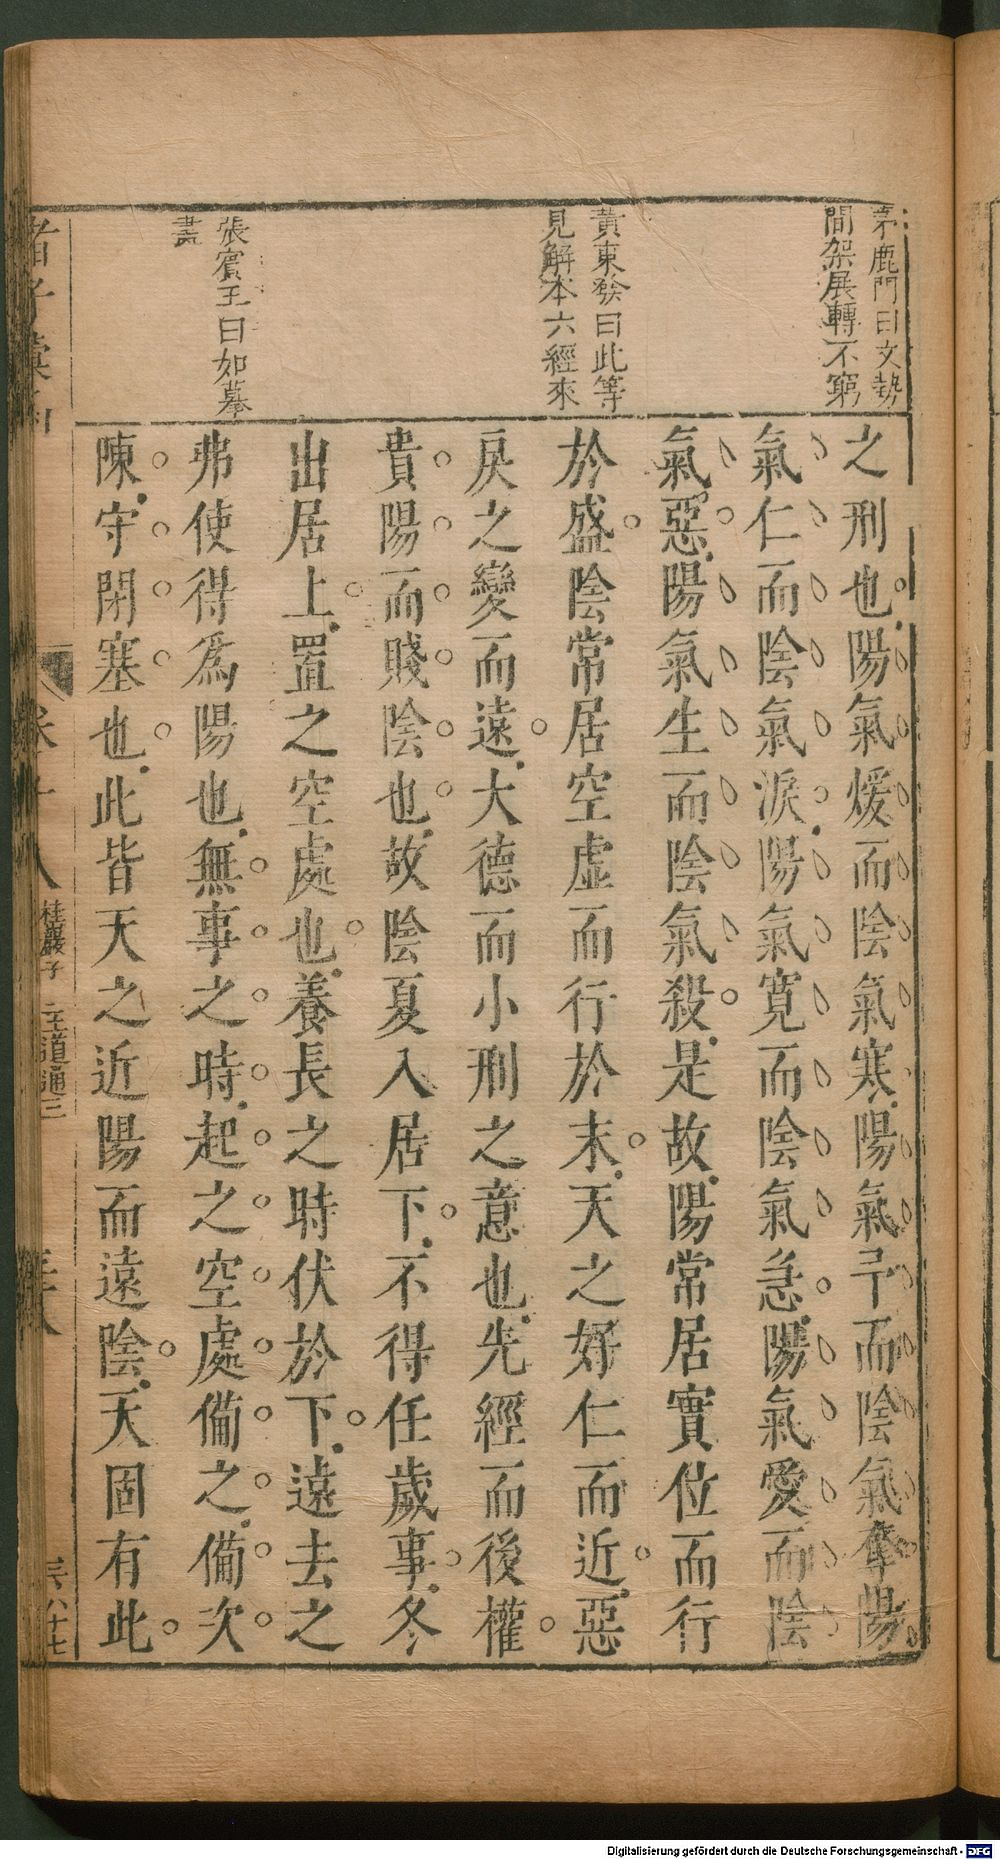 茅鹿門曰文勢
間架展轉不窮
黃東發曰此等
見解本六經來
張賓王曰如摹
畫
之刑也陽氣煖而陰氣寒陽氣予而陰氣奪陽
氣仁而陰氣淚陽氣寬而陰氣急陽氣愛而陰
氣惡陽氣生而陰氣殺是故陽常居實位而行
於盛陰常居空虛而行於末天之好仁而近惡
戾之變而遠大德而小刑之意也先經而後權
貴陽而賤陰也故陰夏入居下不得任歲事冬
出居上置之空處也養長之時伏於下遠去之
弗使得為陽也無事之時起之空處備之備次
陳守閉塞也此皆天之近陽而遠陰天固有此
諸子彙函
桂巖子 王道通三
Digitalisierung gefördert durch die Deutsche Forschungsgemeinschaft - DFG